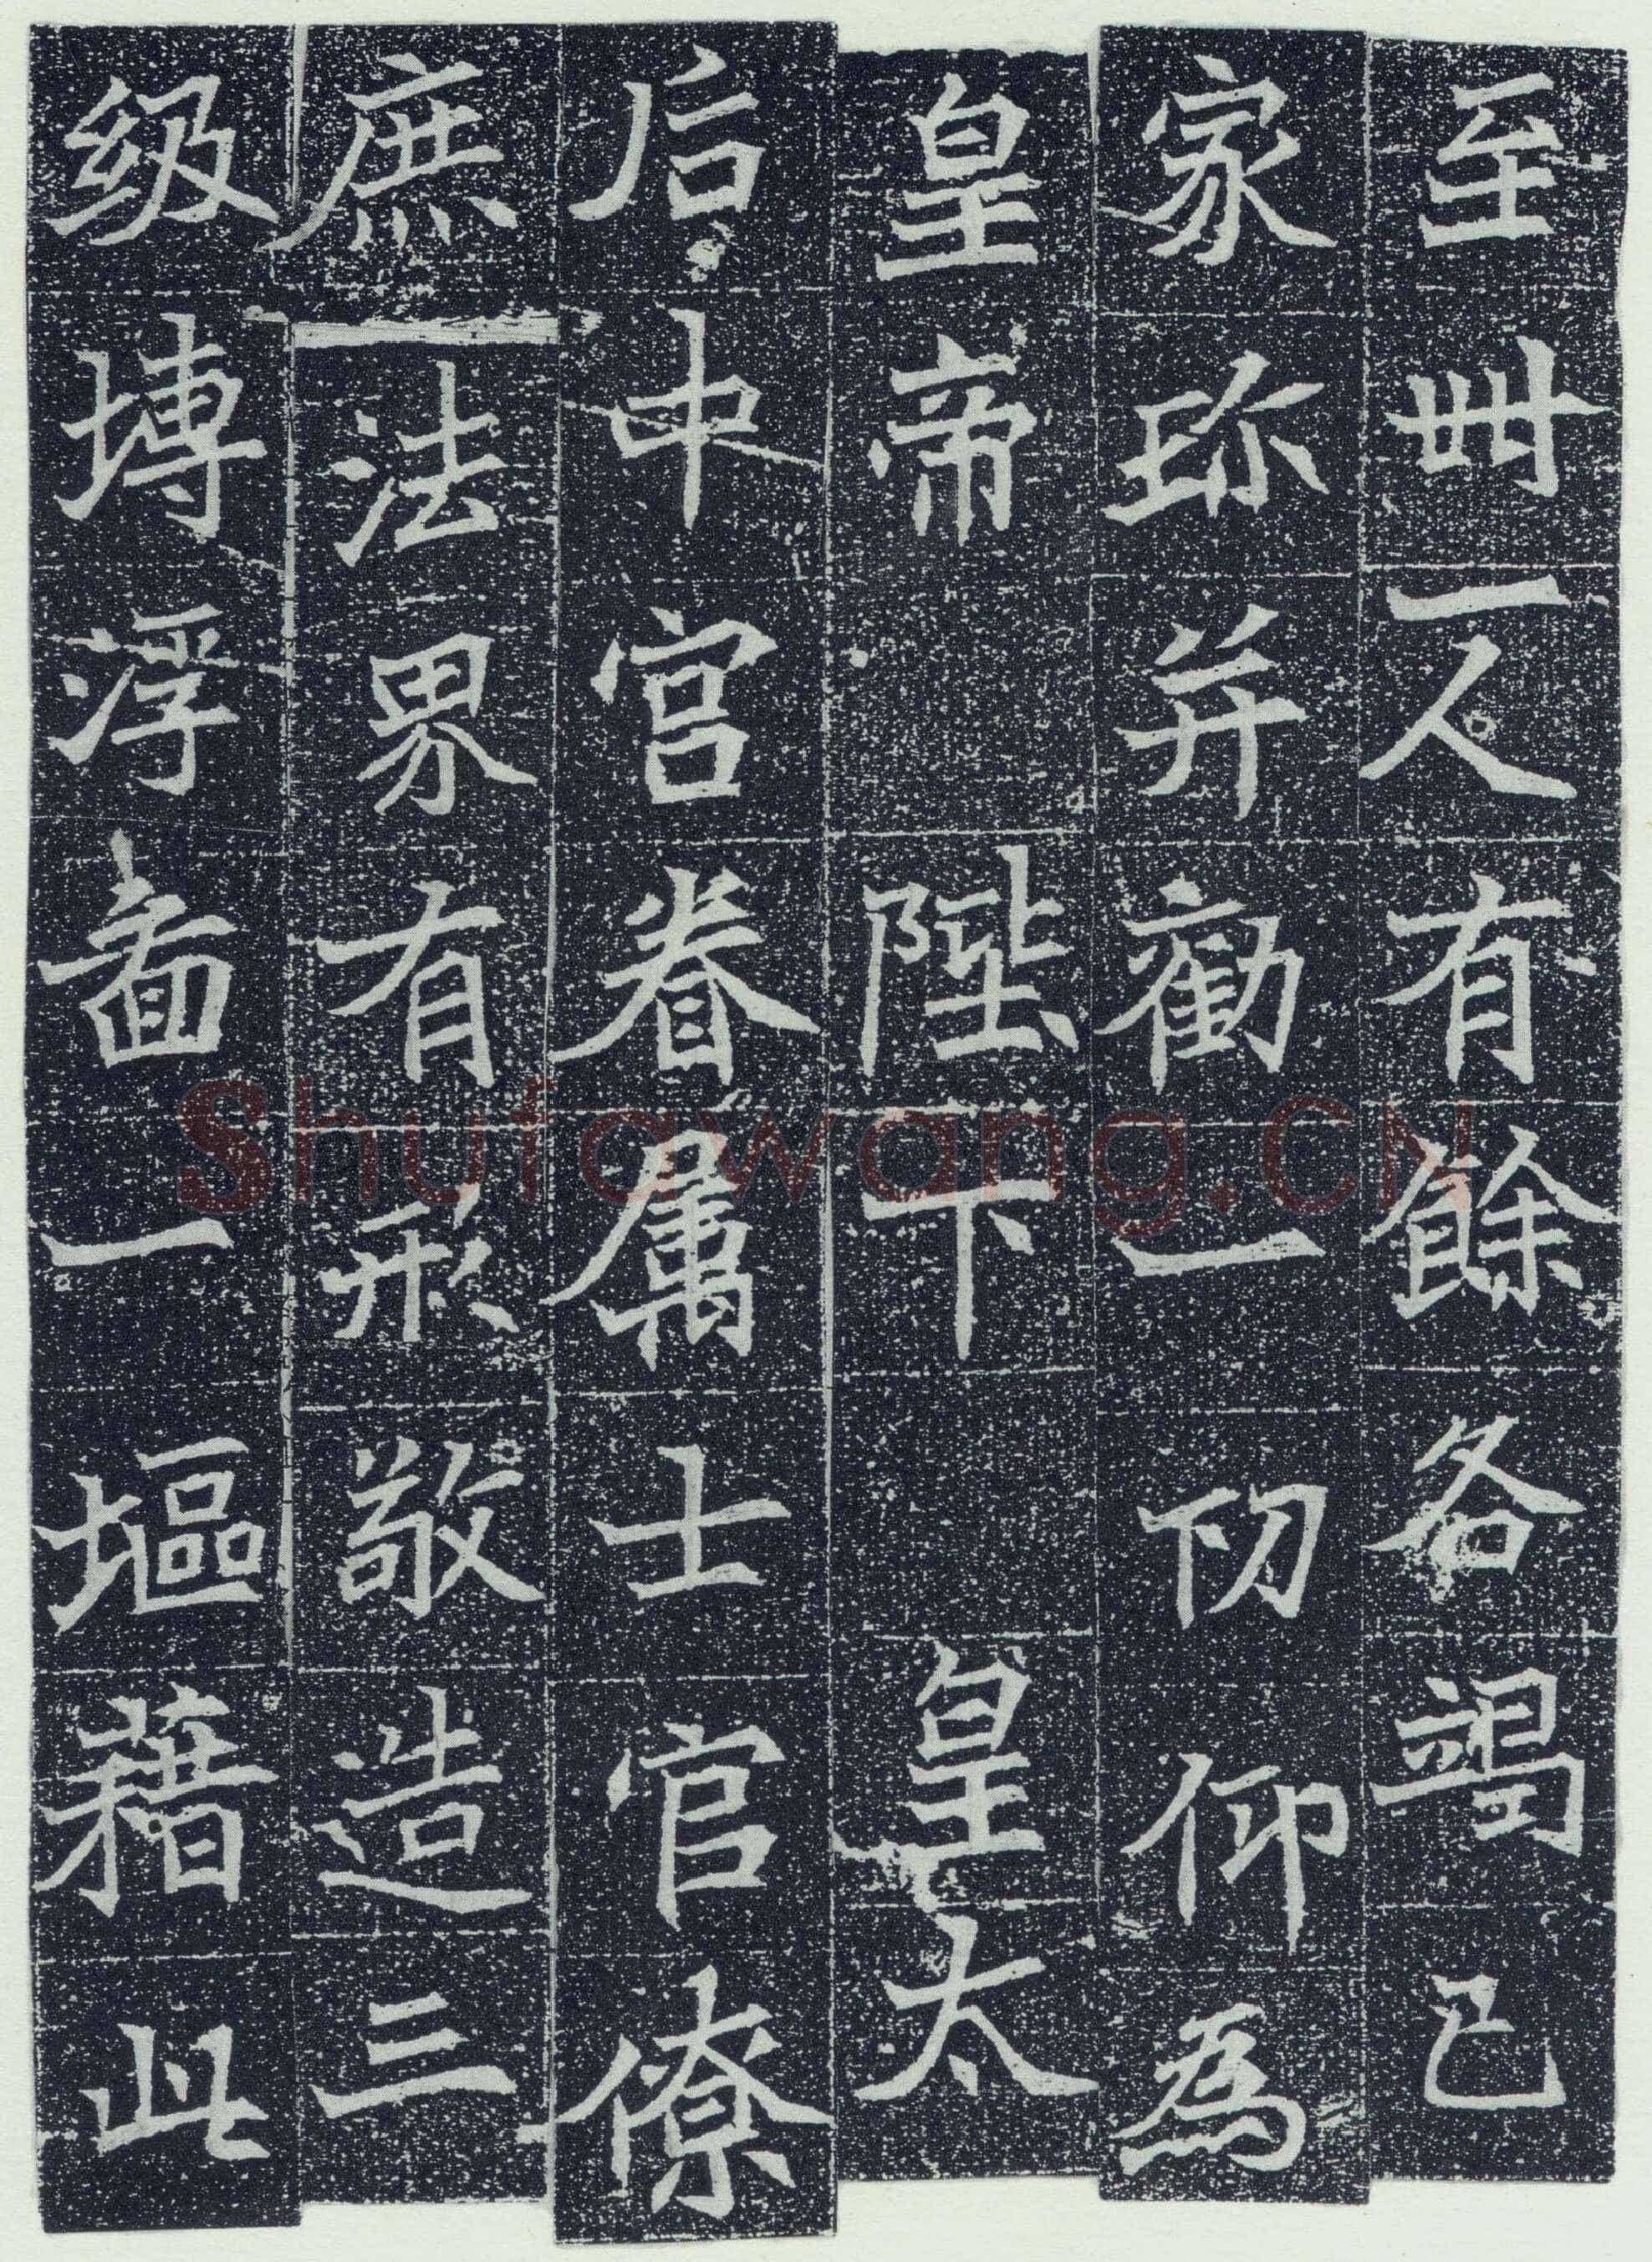 至卌一人有餘各竭己
家珎并勸一切仰為
皇帝陛下皇太
后中宮眷属士官僚
庶法界有形敬造三
級塼浮啚一塸藉此
Shufawang.CN